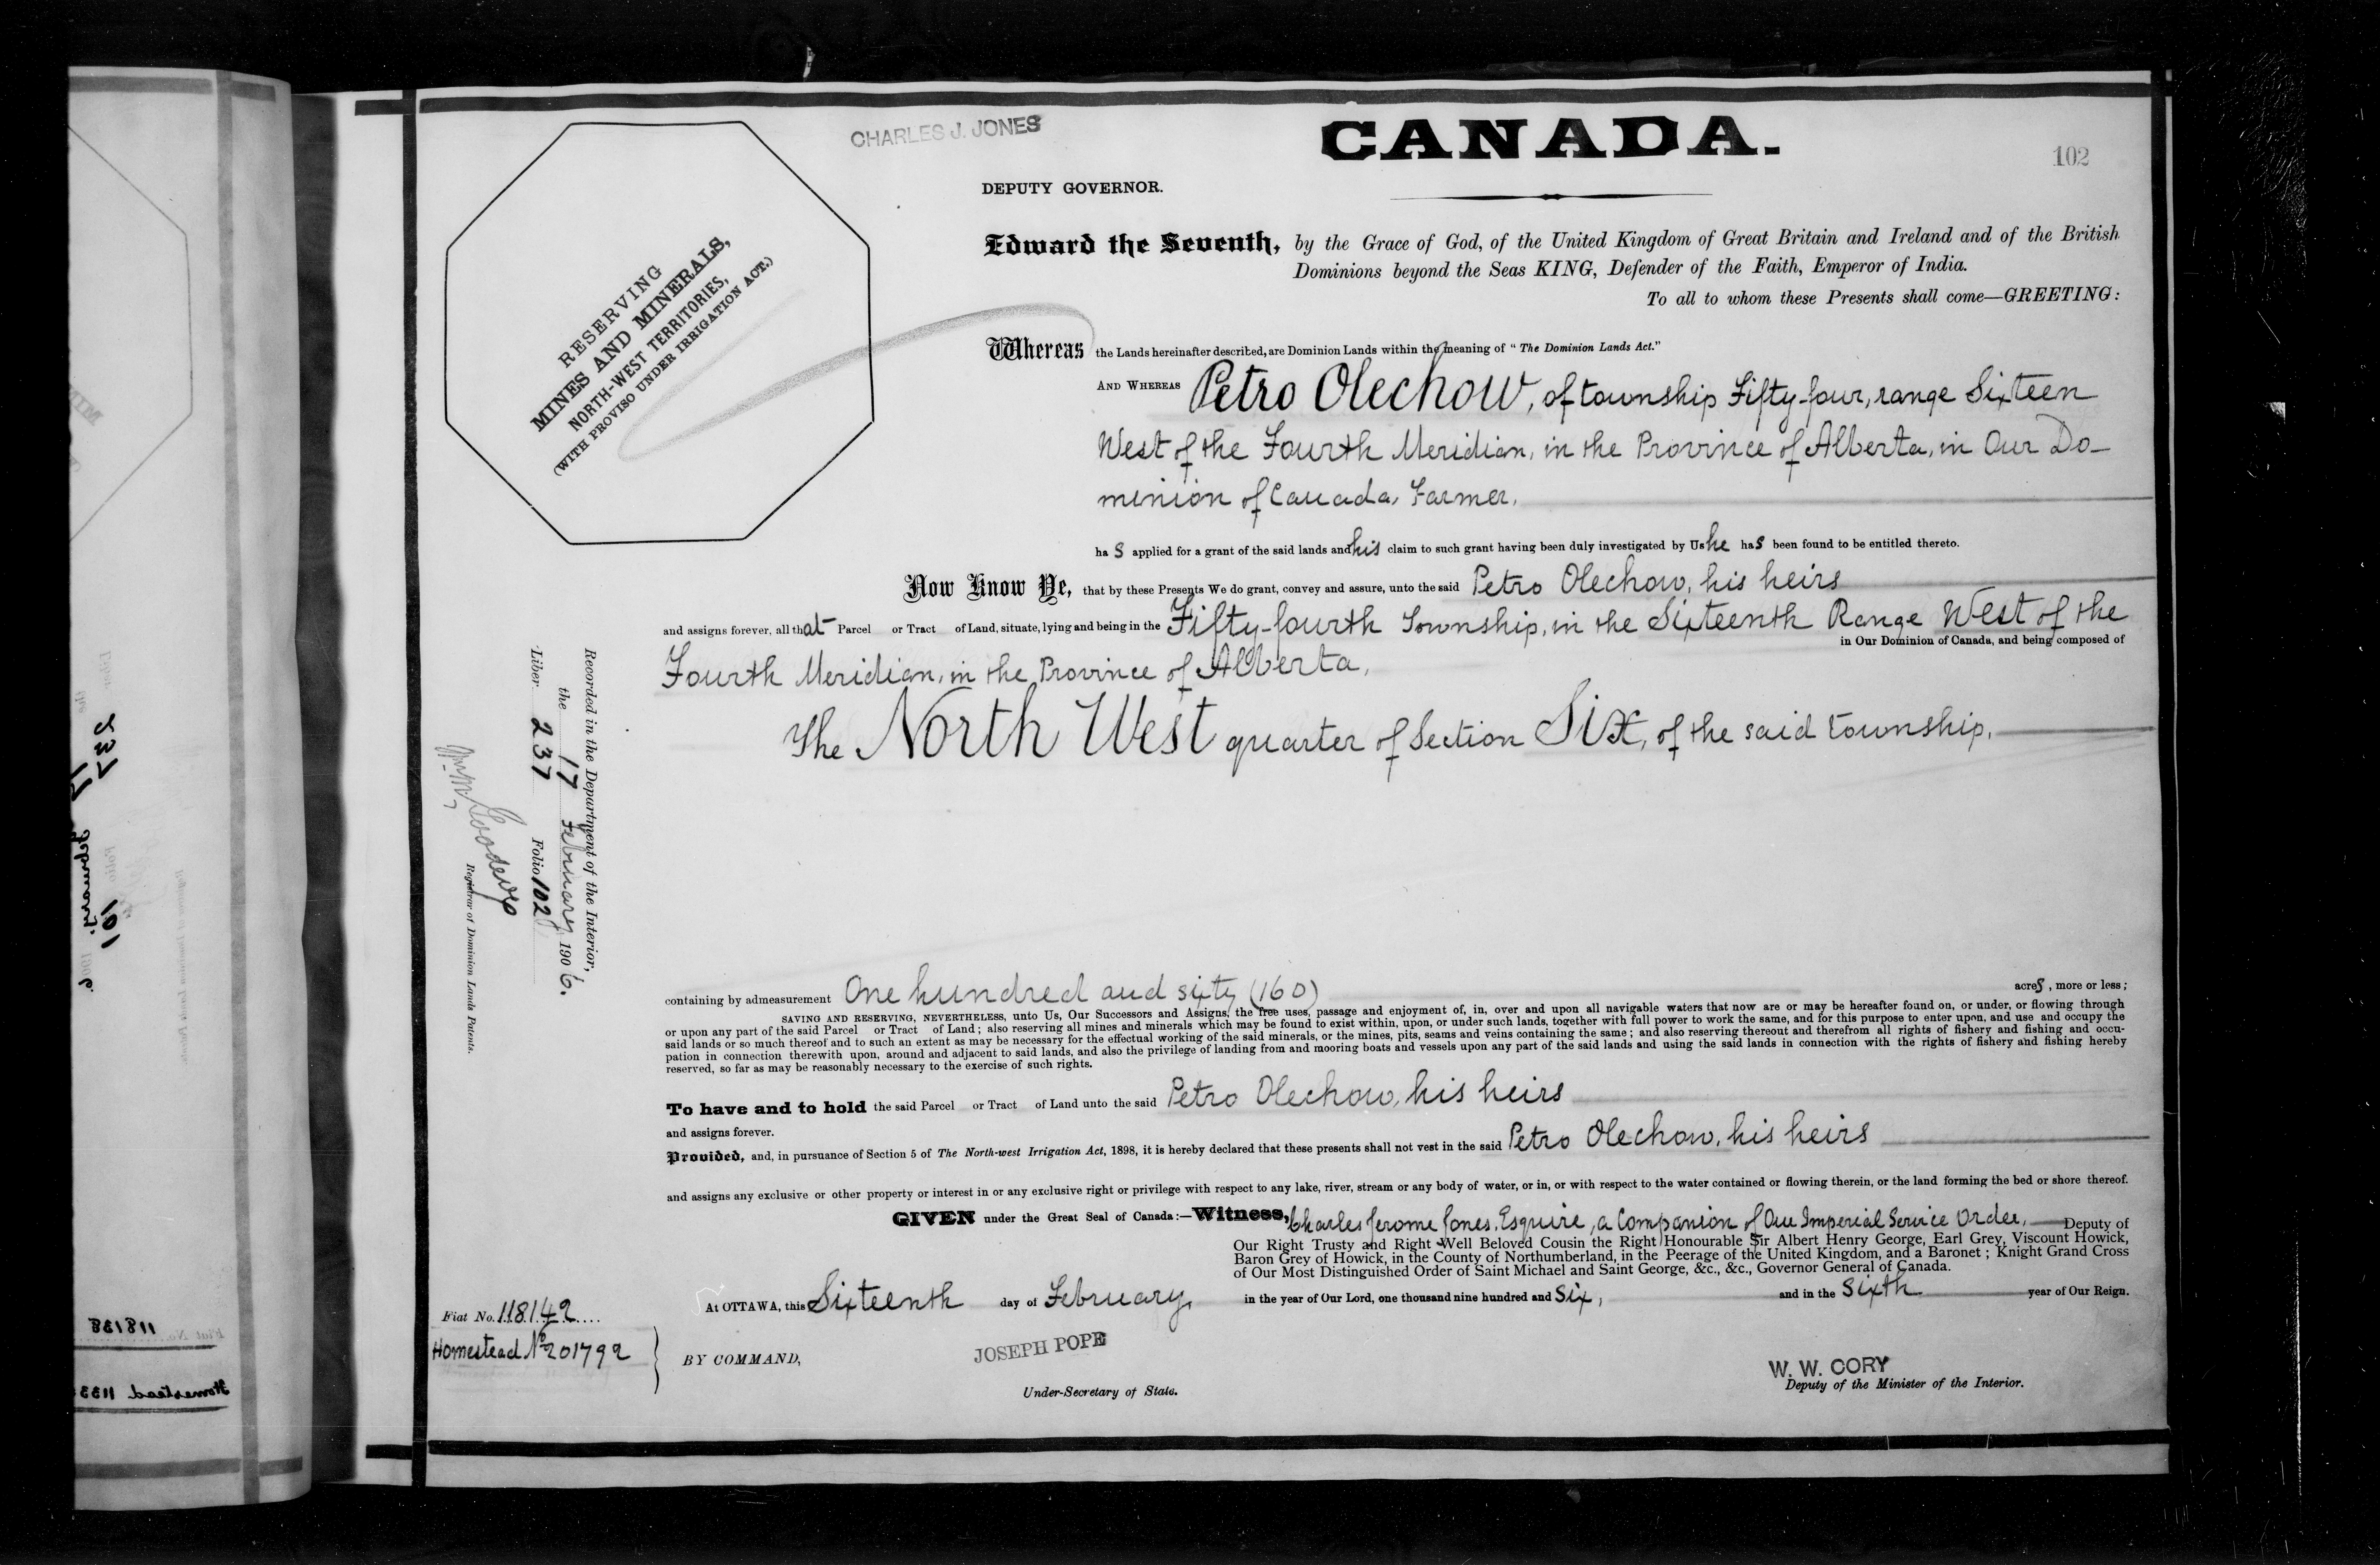 CHARLES J. JONES
CANADA.
102
DEPUTY GOVERNOR.
RESERVING
MINES AND MINERALS,
NORTH-WEST TERRITORIES,
(WITH PROVISO UNDER IRRIGATION ACT.)
Edward the Seventh, by the Grace of God, of the United Kingdom of Great Britain and Ireland and of the British
Dominions beyond the Seas KING, Defender of the Faith, Emperor of India.
To all to whom these Presents shall come—GREETING:
Whereas the Lands hereinafter described, are Dominion Lands within the meaning of "The Dominion Lands Act."
AND WHEREAS Petro Olechow, of township Fifty-four, range Sixteen
West of the Fourth Meridian, in the Province of Alberta, in Our Do-
minion of Canada, Farmer,
ha s applied for a grant of the said lands and his claim to such grant having been duly investigated by Us he has been found to be entitled thereto.
Now Know Ye, that by these Presents We do grant, convey and assure, unto the said Petro Olechow, his heirs
and assigns forever, all that Parcel or Tract of Land, situate, lying and being in the Fifty-fourth Township, in the Sixteenth Range West of the
in Our Dominion of Canada, and being composed of
Fourth Meridian, in the Province of Alberta,
The North West quarter of Section Six, of the said township,
Recorded in the Department of the Interior,
the 17 February 1906.
Liber 237 Folio 102
Registrar of Dominion Lands Patents.
containing by admeasurement One hundred and sixty (160) acres, more or less;
SAVING AND RESERVING, NEVERTHELESS, unto Us, Our Successors and Assigns, the free uses, passage and enjoyment of, in, over and upon all navigable waters that now are or may be hereafter found on, or under, or flowing through
or upon any part of the said Parcel or Tract of Land; also reserving all mines and minerals which may be found to exist within, upon, or under such lands, together with full power to work the same, and for this purpose to enter upon, and use and occupy the
said lands or so much thereof and to such an extent as may be necessary for the effectual working of the said minerals, or the mines, pits, seams and veins containing the same; and also reserving thereout and therefrom all rights of fishery and fishing and occu-
pation in connection therewith upon, around and adjacent to said lands, and also the privilege of landing from and mooring boats and vessels upon any part of the said lands and using the said lands in connection with the rights of fishery and fishing hereby
reserved, so far as may be reasonably necessary to the exercise of such rights.
To have and to hold the said Parcel or Tract of Land unto the said Petro Olechow, his heirs
and assigns forever.
Provided, and, in pursuance of Section 5 of The North-west Irrigation Act, 1898, it is hereby declared that these presents shall not vest in the said Petro Olechow, his heirs
and assigns any exclusive or other property or interest in or any exclusive right or privilege with respect to any lake, river, stream or any body of water, or in, or with respect to the water contained or flowing therein, or the land forming the bed or shore thereof.
GIVEN under the Great Seal of Canada:—Witness, Charles Jerome Jones, Esquire, a Companion of Our Imperial Service Order, Deputy of
Our Right Trusty and Right Well Beloved Cousin the Right Honourable Sir Albert Henry George, Earl Grey, Viscount Howick,
Baron Grey of Howick, in the County of Northumberland, in the Peerage of the United Kingdom, and a Baronet; Knight Grand Cross
of Our Most Distinguished Order of Saint Michael and Saint George, &c., &c., Governor General of Canada.
At OTTAWA, this Sixteenth day of February, in the year of Our Lord, one thousand nine hundred and Six, and in the Sixth year of Our Reign.
Fiat No. 118142
Homestead No 201792
BY COMMAND,
JOSEPH POPE
Under-Secretary of State.
W. W. CORY
Deputy of the Minister of the Interior.